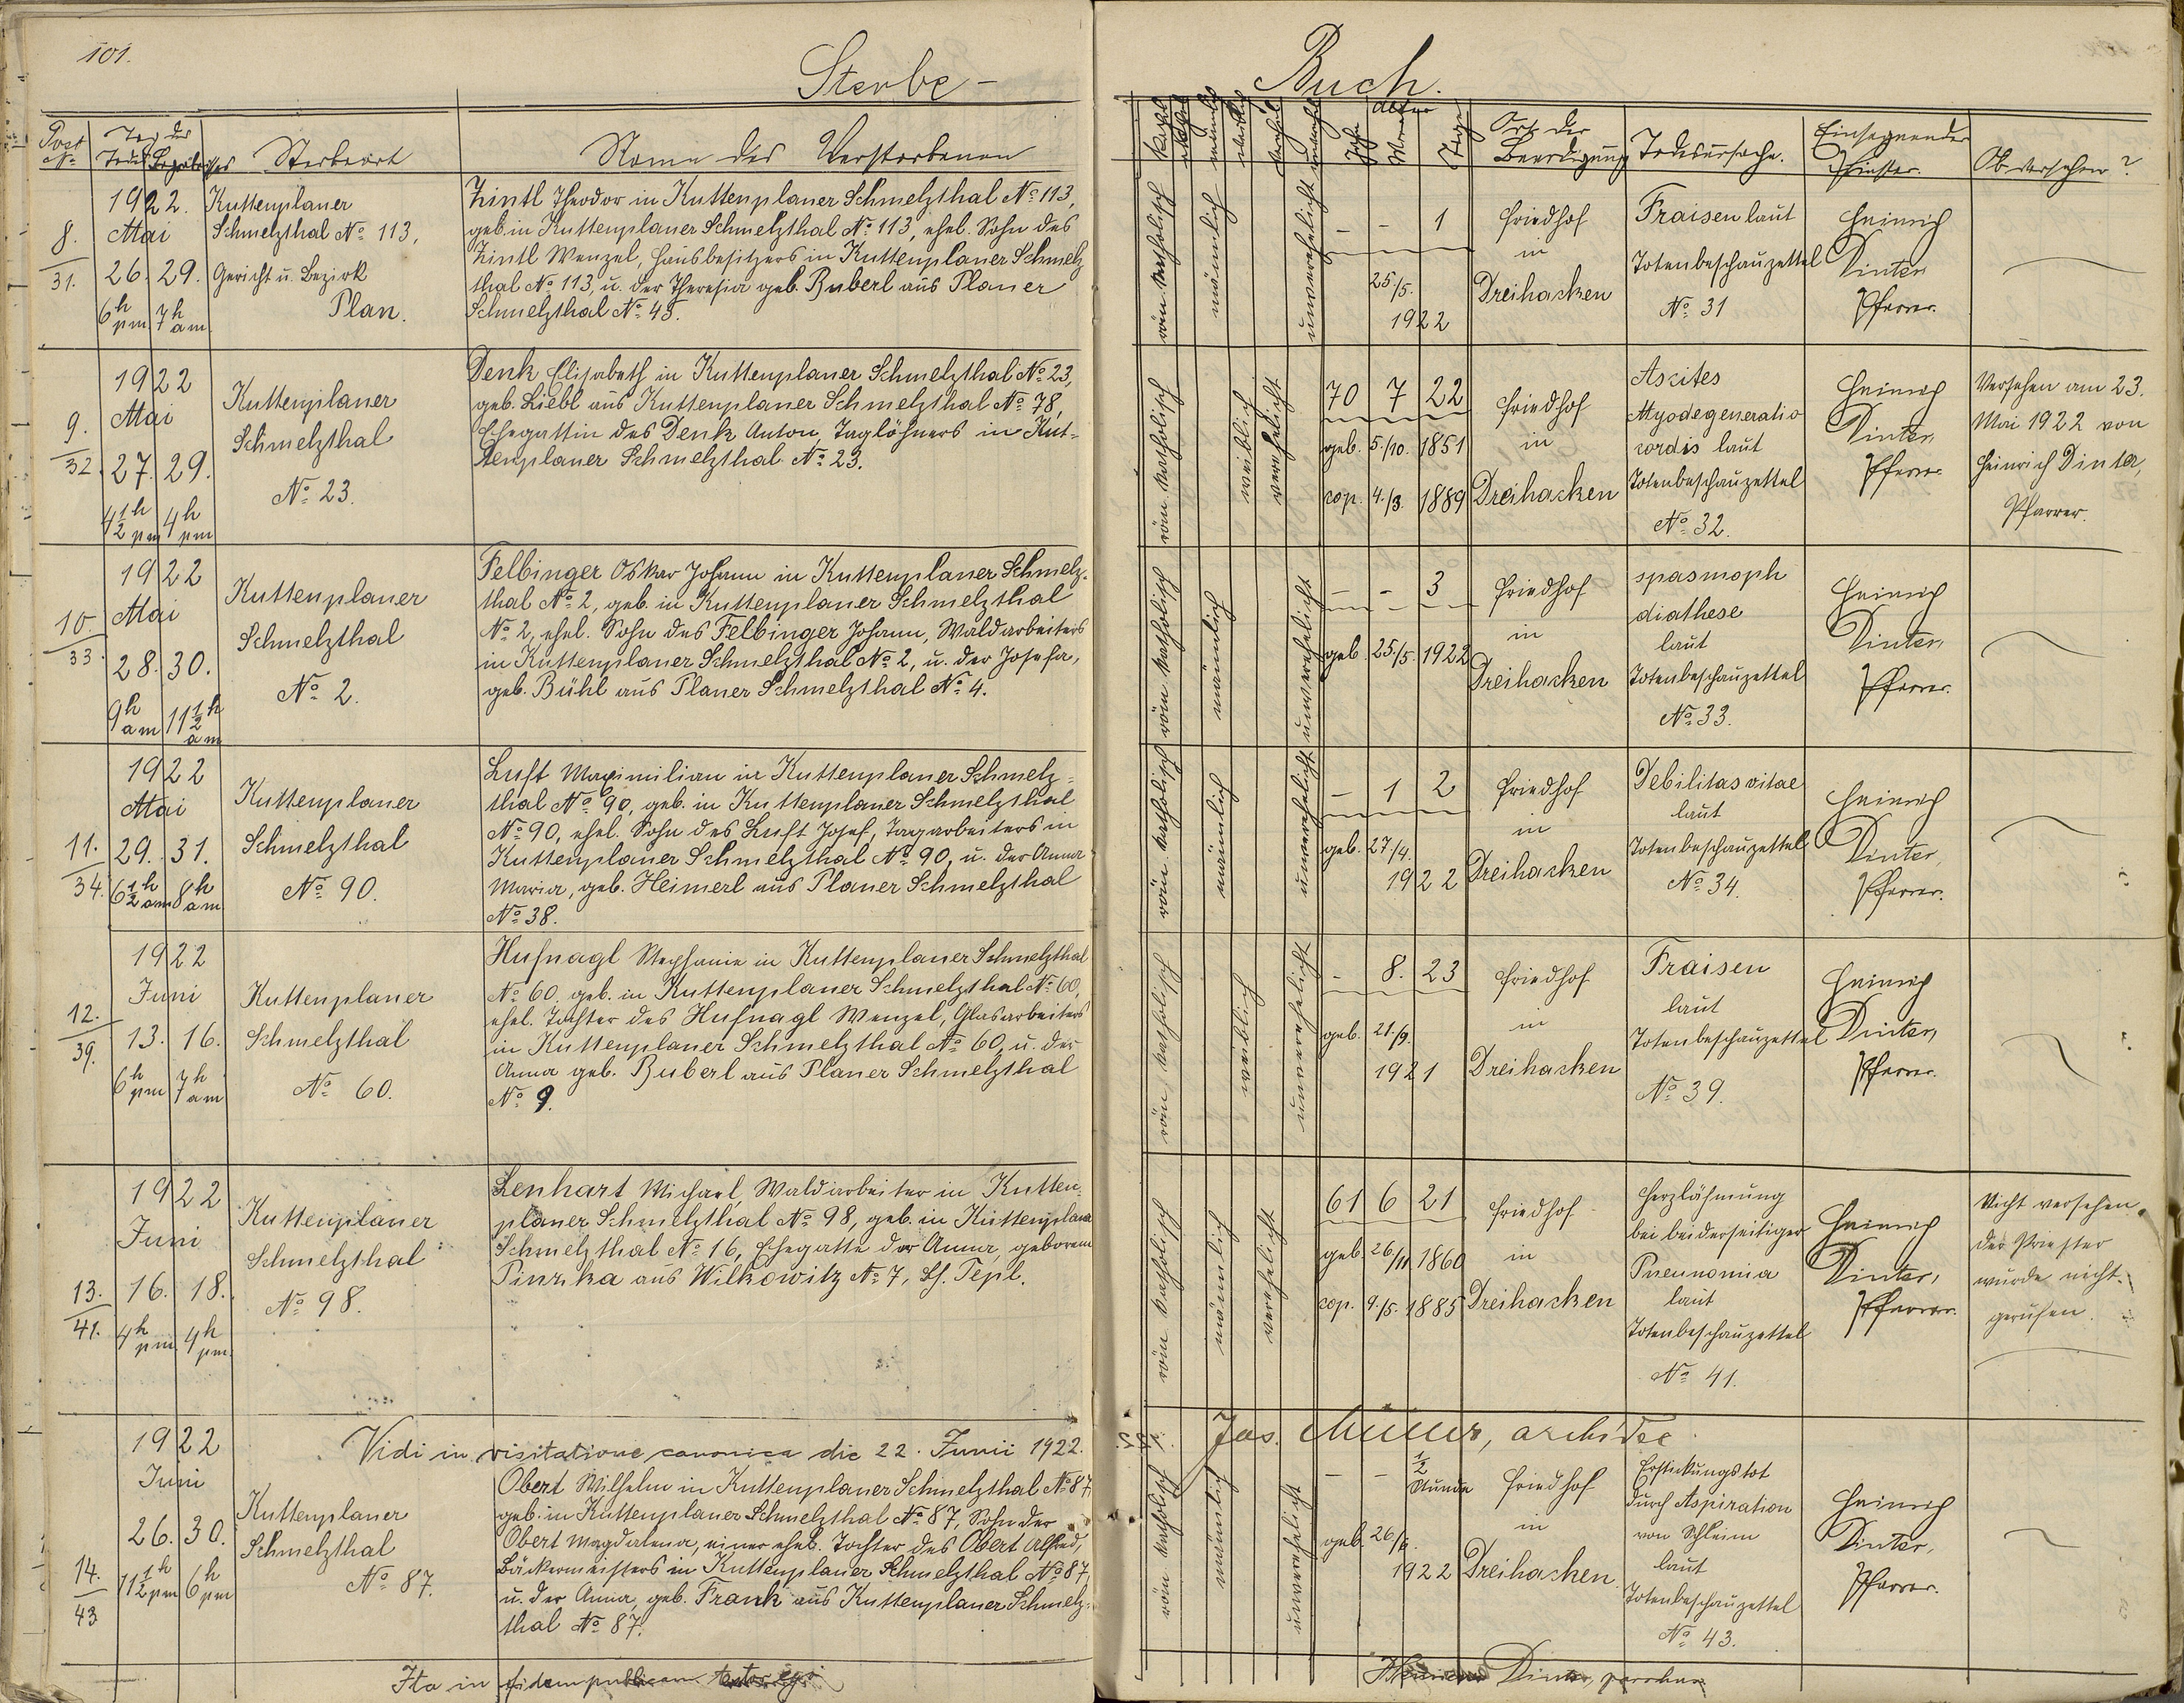 101.
Sterbe-
Post
No
Tag des
Todes Begräbnisses
Sterbeort
Name des Verstorbenen
8.
31.
1922.
Mai
26. 29.
6h pm 7h am
Kuttenplaner
Schmelzthal No 113,
Gericht u. Bezirk
Plan.
Zintl Theodor in Kuttenplaner Schmelzthal No 113,
geb. in Kuttenplaner Schmelzthal No 113, ehel. Sohn des
Zintl Wenzel, Hausbesitzers in Kuttenplaner Schmelz
thal No 113, u. der Theresia geb. Buberl aus Planer
Schmelzthal No 45.
9.
32.
1922
Mai
27. 29.
4 1/2 h pm 4h pm
Kuttenplaner
Schmelzthal
No 23.
Denk Elisabeth in Kuttenplaner Schmelzthal No 23,
geb. Liebl aus Kuttenplaner Schmelzthal No 78,
Ehegattin des Denk Anton, Taglöhners in Kut-
tenplaner Schmelzthal No 23.
10
33.
1922
Mai
28. 30.
9h am 11 1/2 h am
Kuttenplaner
Schmelzthal
No 2.
Felbinger Oskar Johann in Kuttenplaner Schmelz-
thal No 2, geb. in Kuttenplaner Schmelzthal
No 2, ehel. Sohn des Felbinger Johann, Waldarbeiters
in Kuttenplaner Schmelzthal No 2, u. der Josefa,
geb. Bühl aus Planer Schmelzthal No 4.
11.
34.
1922
Mai
29. 31.
6 1/2 h am 8h am
Kuttenplaner
Schmelzthal
No 90.
Luft Maximilian in Kuttenplaner Schmelz-
thal No 90, geb. in Kuttenplaner Schmelzthal
No 90, ehel. Sohn des Luft Josef, Tagarbeiters in
Kuttenplaner Schmelzthal No 90, u. der Anna
Maria, geb. Heimerl aus Planer Schmelzthal
No 38.
12.
39.
1922
Juni
13. 16.
6h pm 7h am
Kuttenplaner
Schmelzthal
No 60.
Hufnagl Stephanie in Kuttenplaner Schmelzthal
No 60, geb. in Kuttenplaner Schmelzthal No 60,
ehel. Tochter des Hufnagl Wenzel, Glasarbeiters
in Kuttenplaner Schmelzthal No 60, u. der
Anna geb. Buberl aus Planer Schmelzthal
No 9.
13.
41.
1922
Juni
16. 18.
4h pm 4h pm.
Kuttenplaner
Schmelzthal
No 98.
Lenhart Michael, Waldarbeiter in Kutten-
planer Schmelzthal No 98, geb. in Kuttenplaner
Schmelzthal No 16, Ehegatte der Anna, geborene
Pinzka aus Wilkowitz No 7, Bez. Tepl.
Vidi in visitatione canonica die 22. Junii 1922.
14.
43
1922
Juni
26. 30.
11 1/2 h pm 6h pm
Kuttenplaner
Schmelzthal
No 87.
Obert Wilhelm in Kuttenplaner Schmelzthal No 87,
geb. in Kuttenplaner Schmelzthal No 87, Sohn der
Obert Magdalena, einer ehel. Tochter des Obert Alfred,
Bäckermeisters in Kuttenplaner Schmelzthal No 87,
u. der Anna, geb. Frank aus Kuttenplaner Schmelz-
thal No 87.
Ita in fidem publicam
Buch.
Alter
Jahre
Tage
Ort der
Beerdigung
Todesursache.
Einsegnender
Priester.
Ob versehen?
röm. katholisch
männlich
unverehelicht
- - 1
25./5.
1922
Friedhof
in
Dreihacken
Fraisen laut
Totenbeschauzettel
No 31
Heinrich
Dinter
Pfarrer.
röm. katholisch
weiblich
verehelicht
70 7 22
geb. 5./10. 1851
cop. 4./3. 1889
Friedhof
in
Dreihacken
Ascites
Myodegeneratio
cordis laut
Totenbeschauzettel
No 32.
Heinrich
Dinter,
Pfarrer.
Versehen am 23.
Mai 1922 von
Heinrich Dinter,
Pfarrer.
röm. katholisch
männlich
unverehelicht
- - 3
geb. 25./5. 1922
Friedhof
in
Dreihacken
spasmoph
diathese
laut
Totenbeschauzettel
No 33.
Heinrich
Dinter,
Pfarrer.
röm. katholisch
männlich
unverehelicht
- 1 2
geb. 27/4.
1922
Friedhof
in
Dreihacken
Debilitas vitae
laut
Totenbeschauzettel
No 34.
Heinrich
Dinter,
Pfarrer.
röm. katholisch
weiblich
unverehelicht
- 8. 23
geb. 21./9.
1921
Friedhof
in
Dreihacken
Fraisen
laut
Totenbeschauzettel
No 39.
Heinrich
Dinter,
Pfarrer.
röm. katholisch
männlich
verehelicht
61 6 21
geb. 26./11 1860
cop. 9./5. 1885
Friedhof
in
Dreihacken
Herzlähmung
bei beiderseitiger
Pneunomia
laut
Totenbeschauzettel
No 41.
Heinrich
Dinter,
Pfarrer.
Nicht versehen,
der Priester
wurde nicht
gerufen.
Jos. Müller, archidec
röm. katholisch
männlich
unverehelicht
- - 1/2
Stunde
geb. 26/6.
1922
Friedhof
in
Dreihacken.
Erstickungstot
durch Aspiration
von Schleim
laut
Totenbeschauzettel
No 43.
Heinrich
Dinter,
Pfarrer.
Dinter, parochus